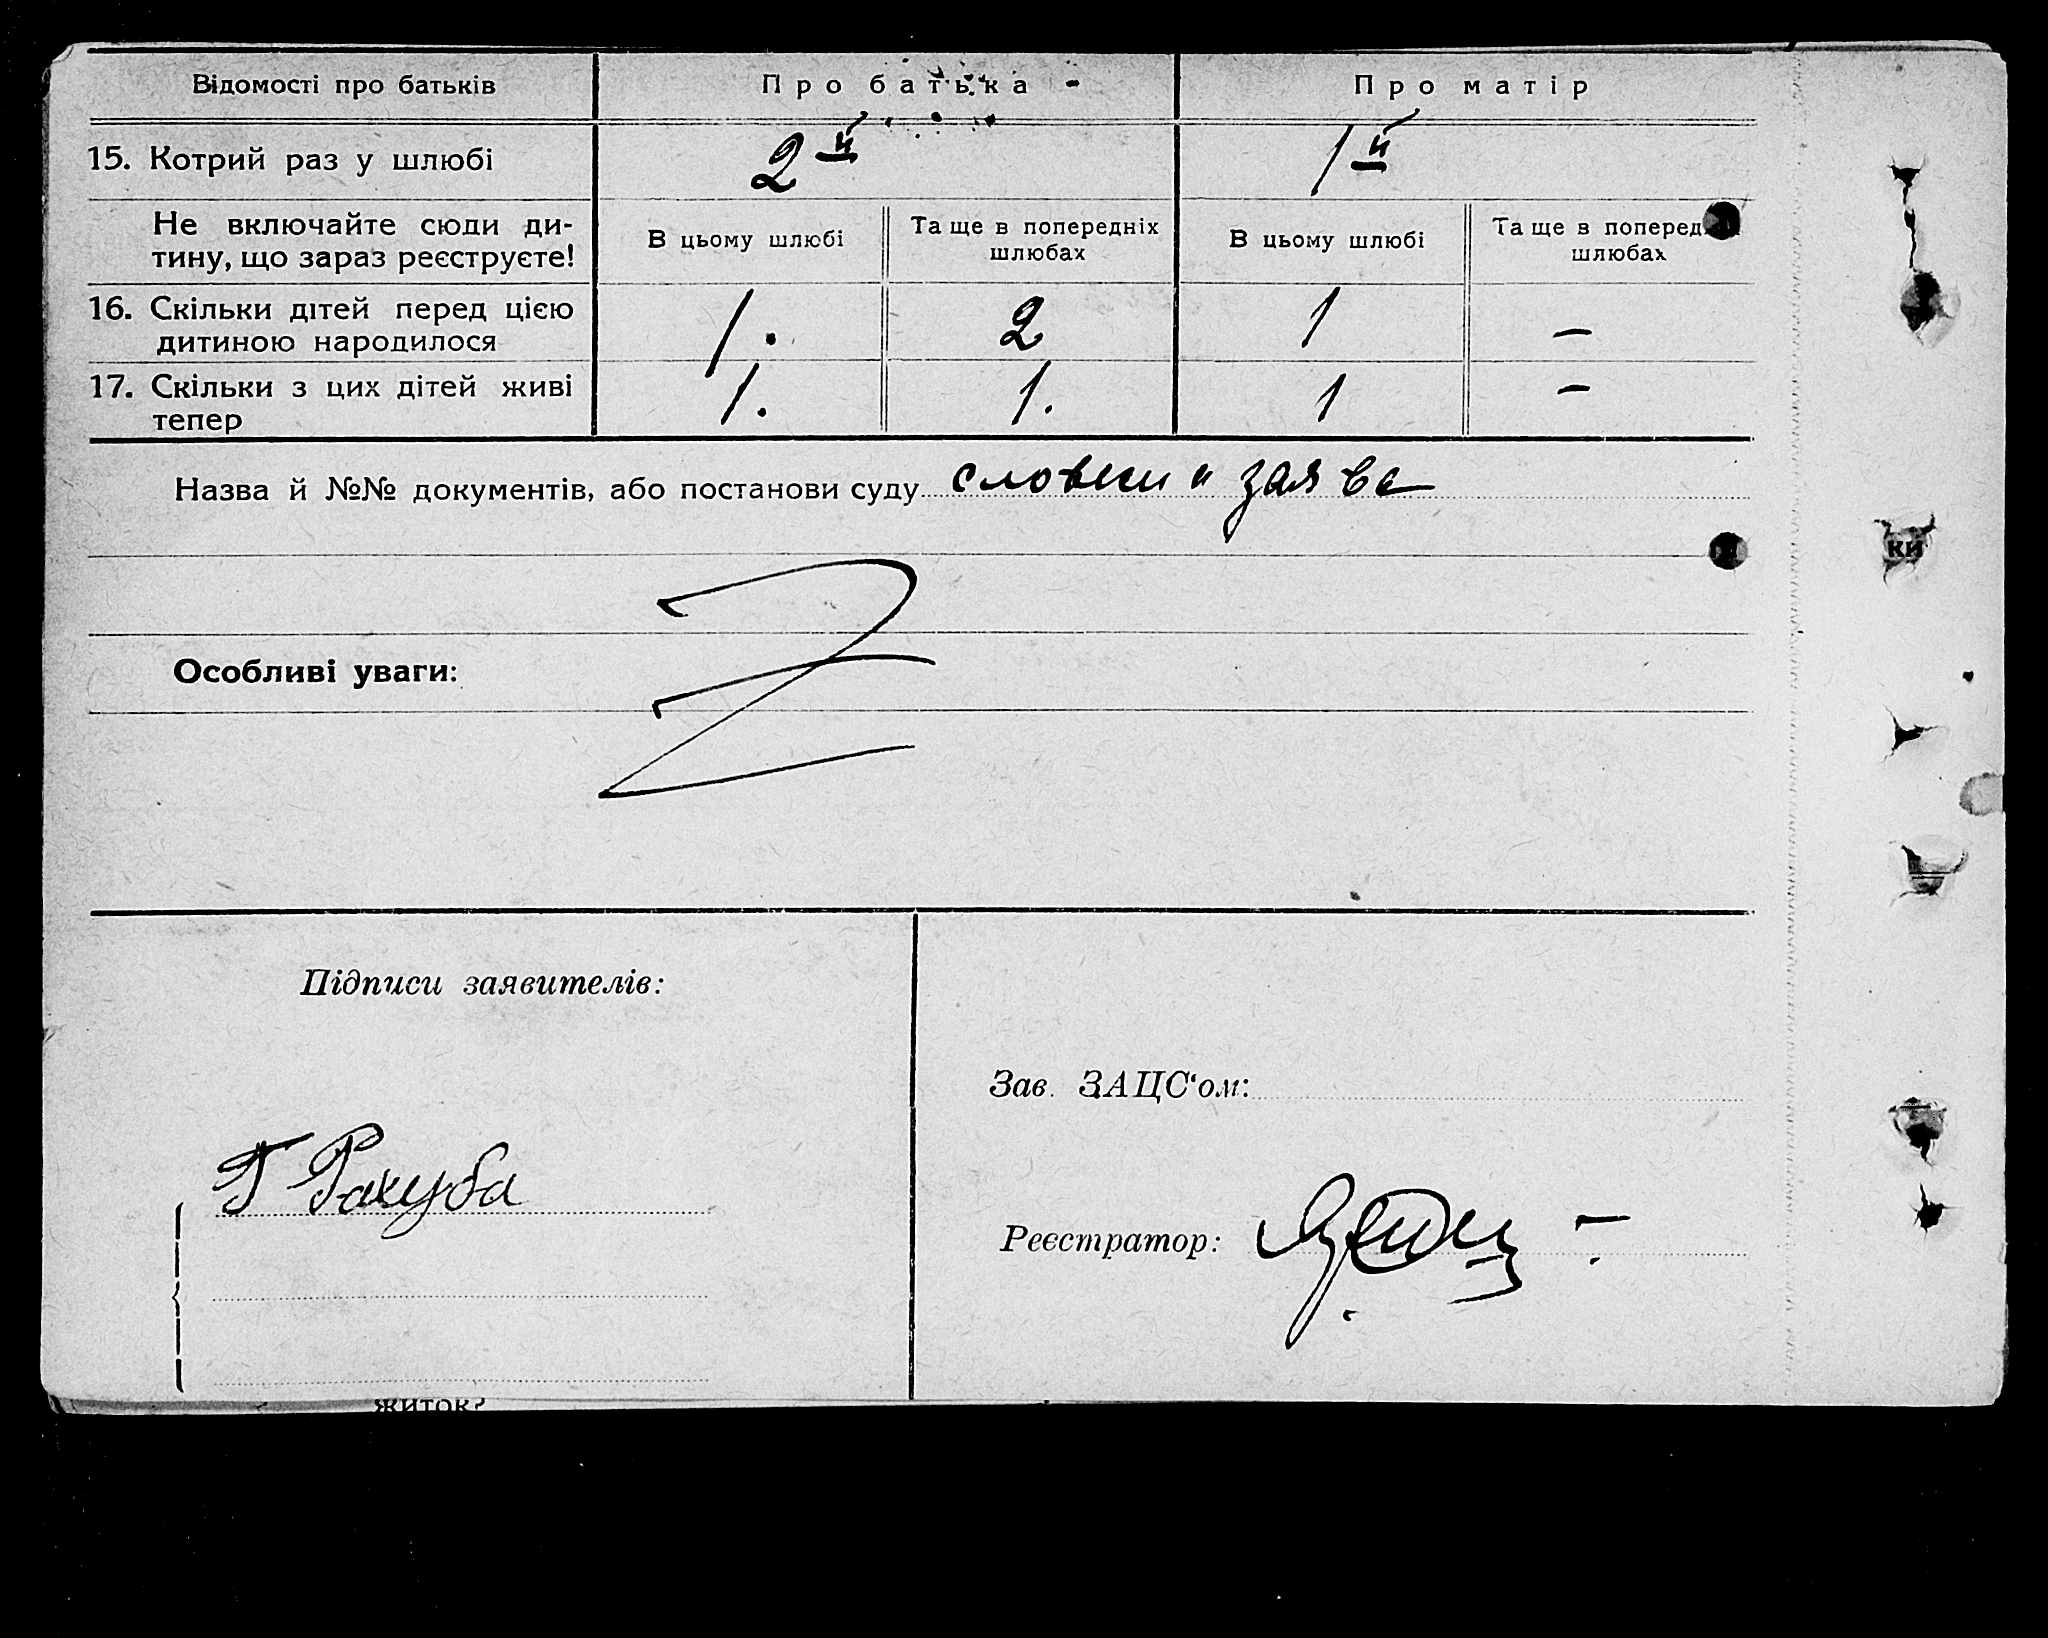 Відомості про батьків Про батька Про матір
15. Котрий раз у шлюбі 2й 1й
Не включайте сюди ди-
тину, що зараз реєструєте!
В цьому шлюбі Та ще в попередніх шлюбах В цьому шлюбі Та ще в поперед шлюбах
16. Скільки дітей перед цією
дитиною народилося 1. 2 1 –
17. Скільки з цих дітей живі
тепер 1. 1. 1 –
Назва й №№ документів, або постанови суду заява
Особливі уваги:
Підписи заявителів:
Г Рахуба
Зав. ЗАЦС‘ом:
Реєстратор:
ки
житок?